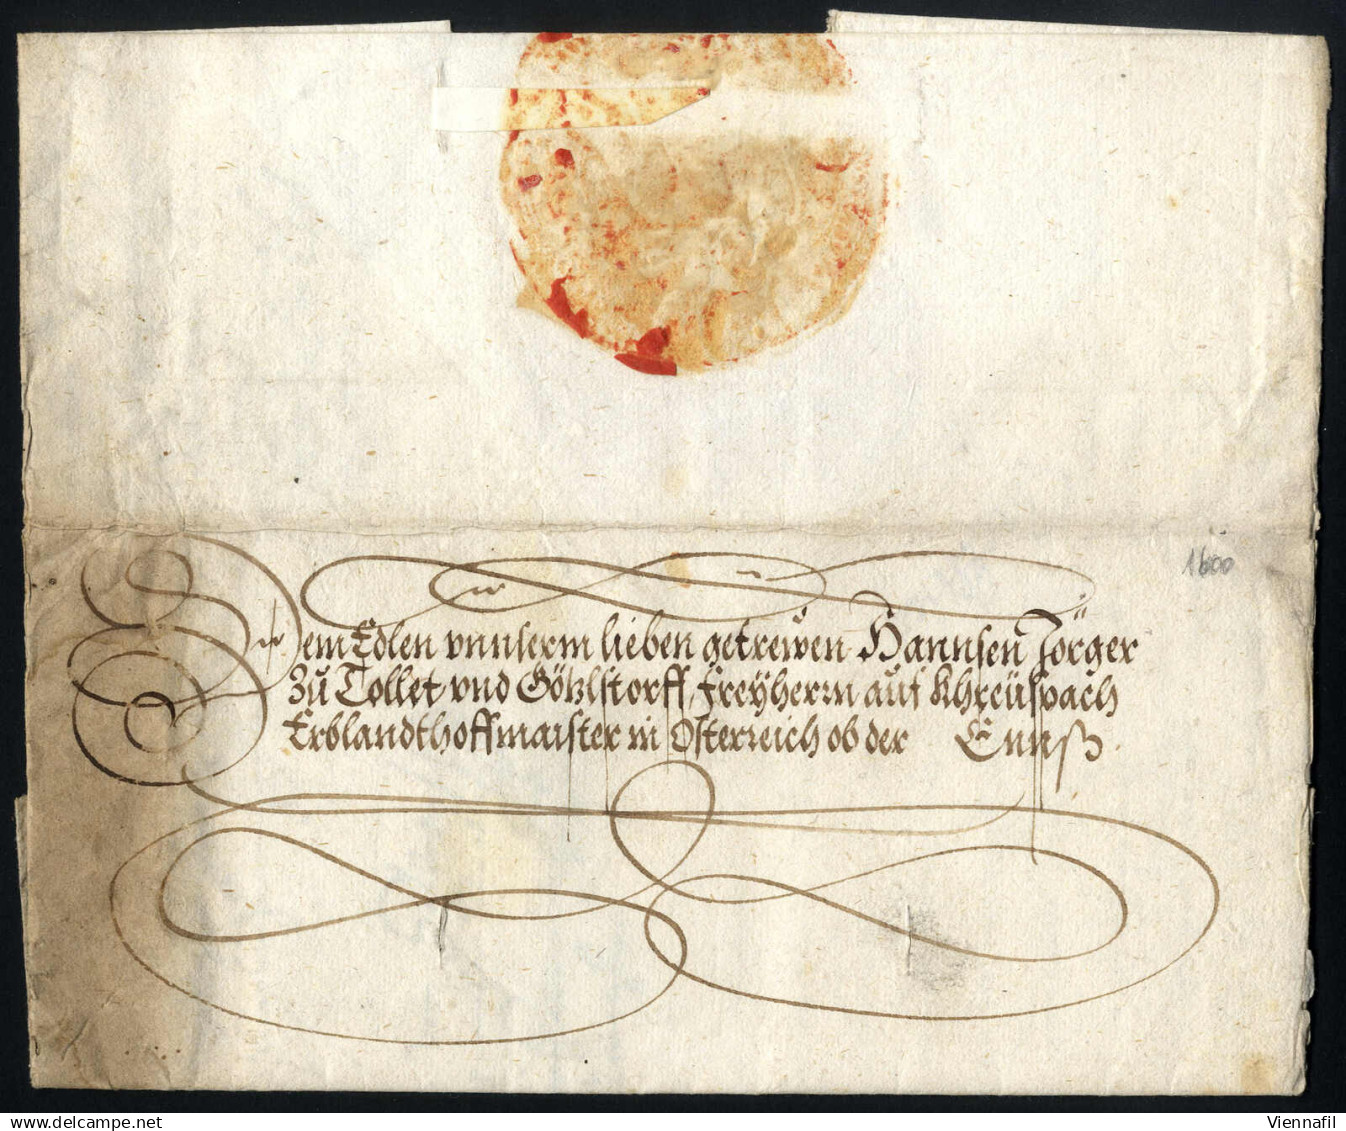 1600
Dem Edlen vnnserm lieben getrewen Hannsen Jörger
Zu Tollet vnd Götzlstorff, Freÿherrn auf Khreüspach
Erblandthoffmaister in Österreich ob der Ennß.
Viennafil